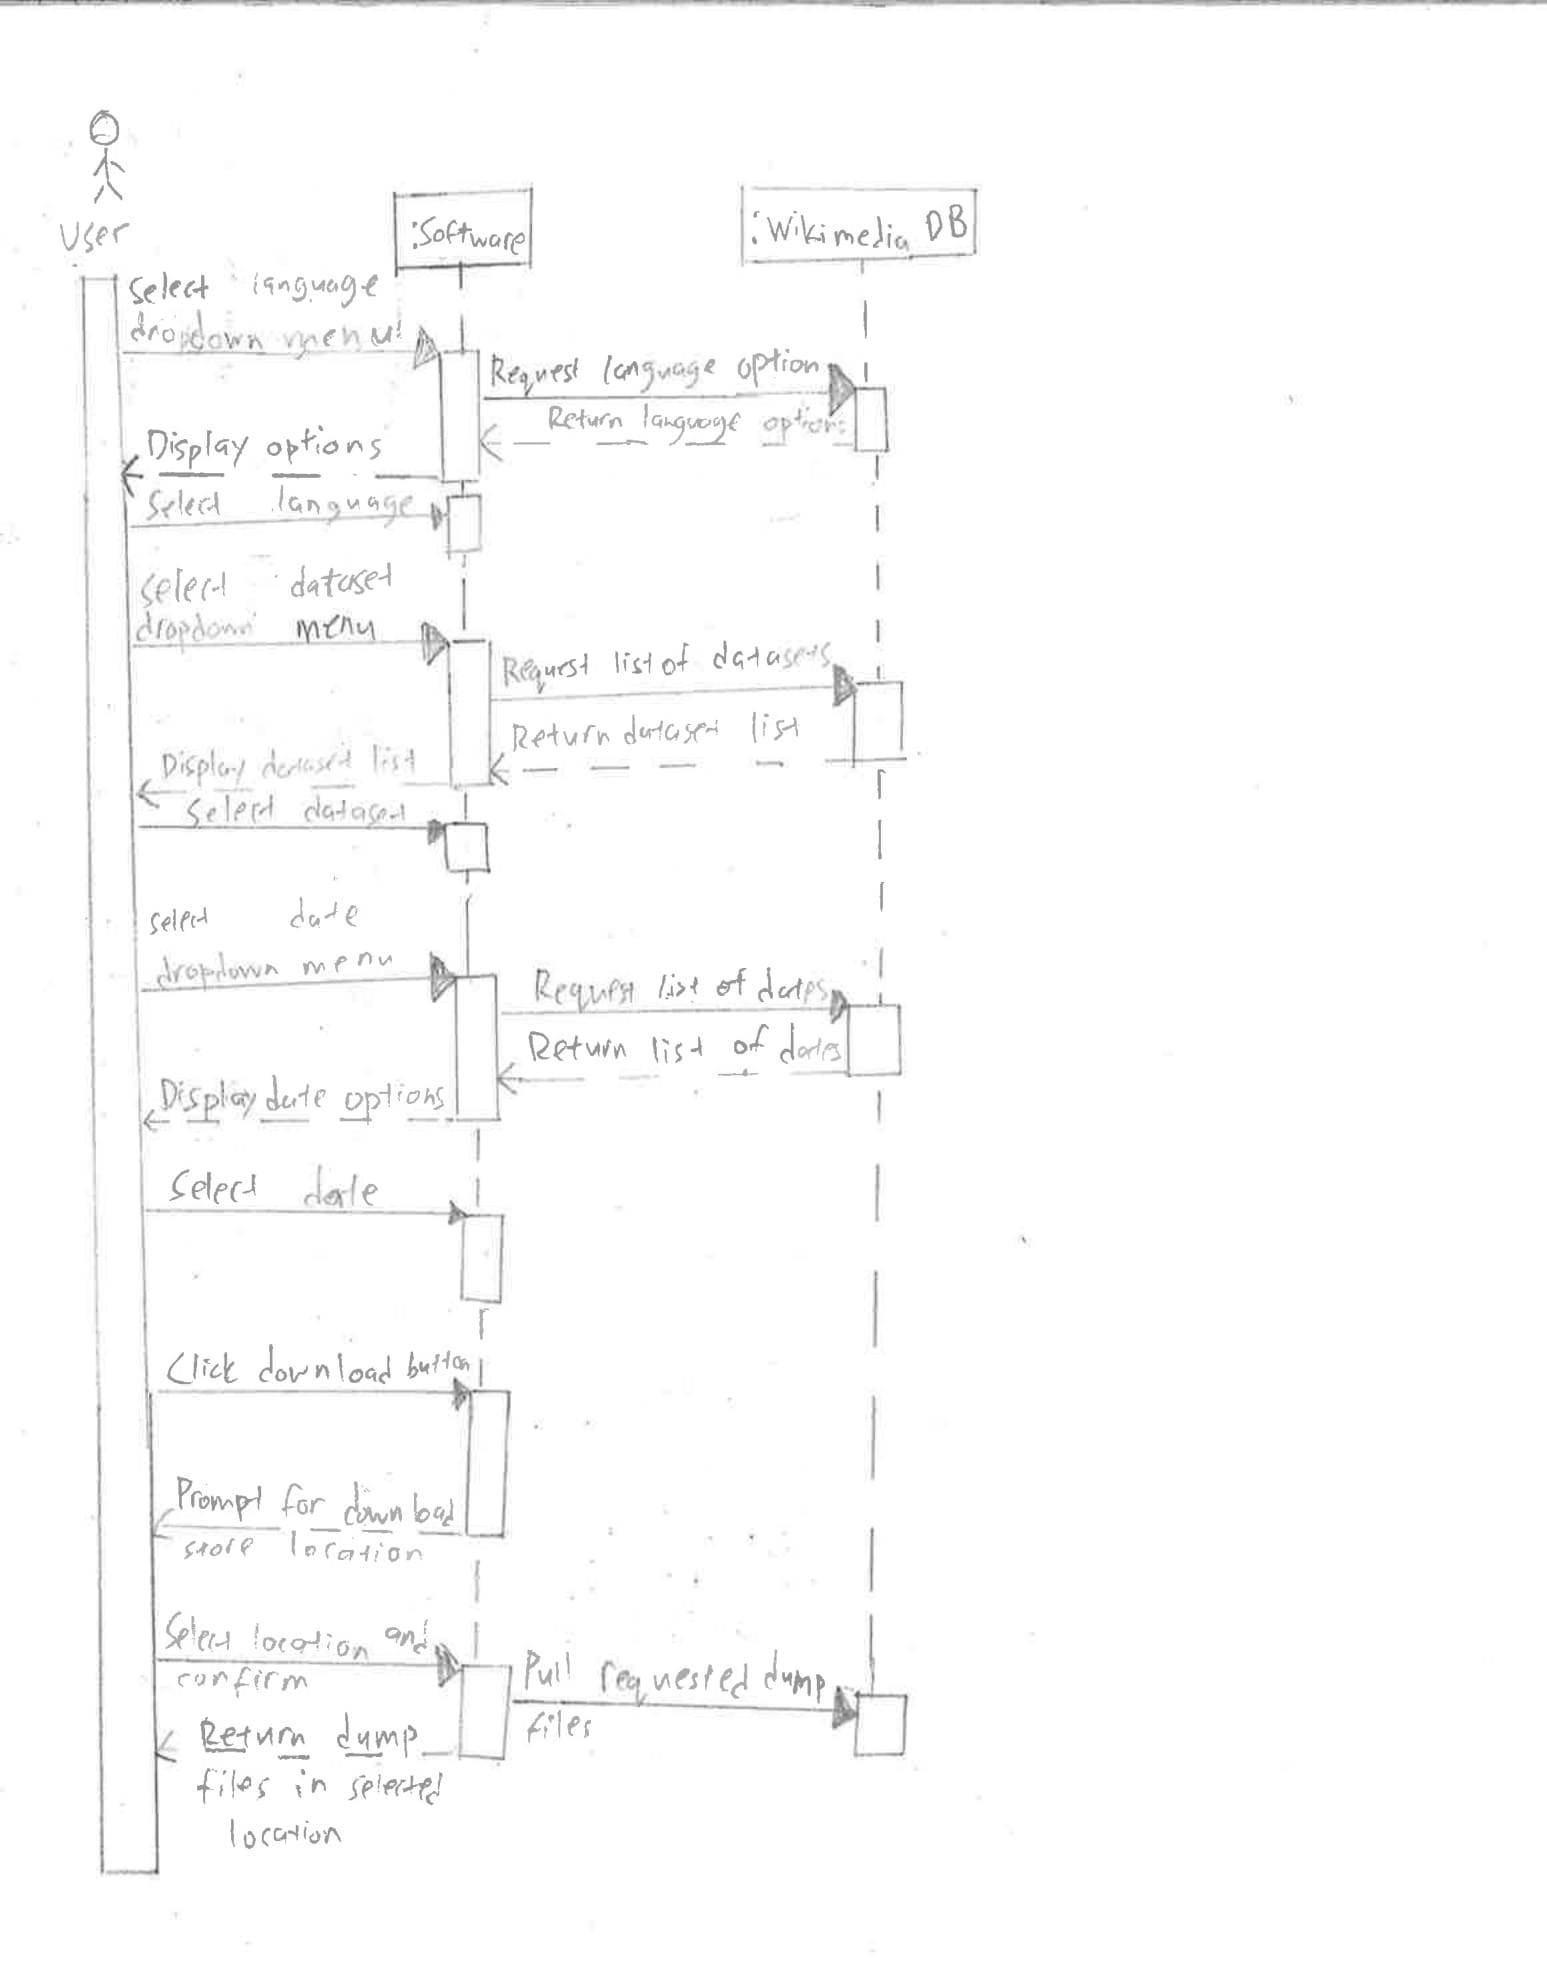 User
:Software
:Wikimedia DB
Select language
dropdown menu
Request language option
Return language options
Display options
Select language
select dataset
dropdown menu
Request list of datasets
Return dataset list
Display dataset list
Select dataset
select date
dropdown menu
Request list of dates
Return list of dates
Display date options
Select date
Click download button
Prompt for download
store location
Select location and
confirm
Pull requested dump
files
Return dump
files in selected
location